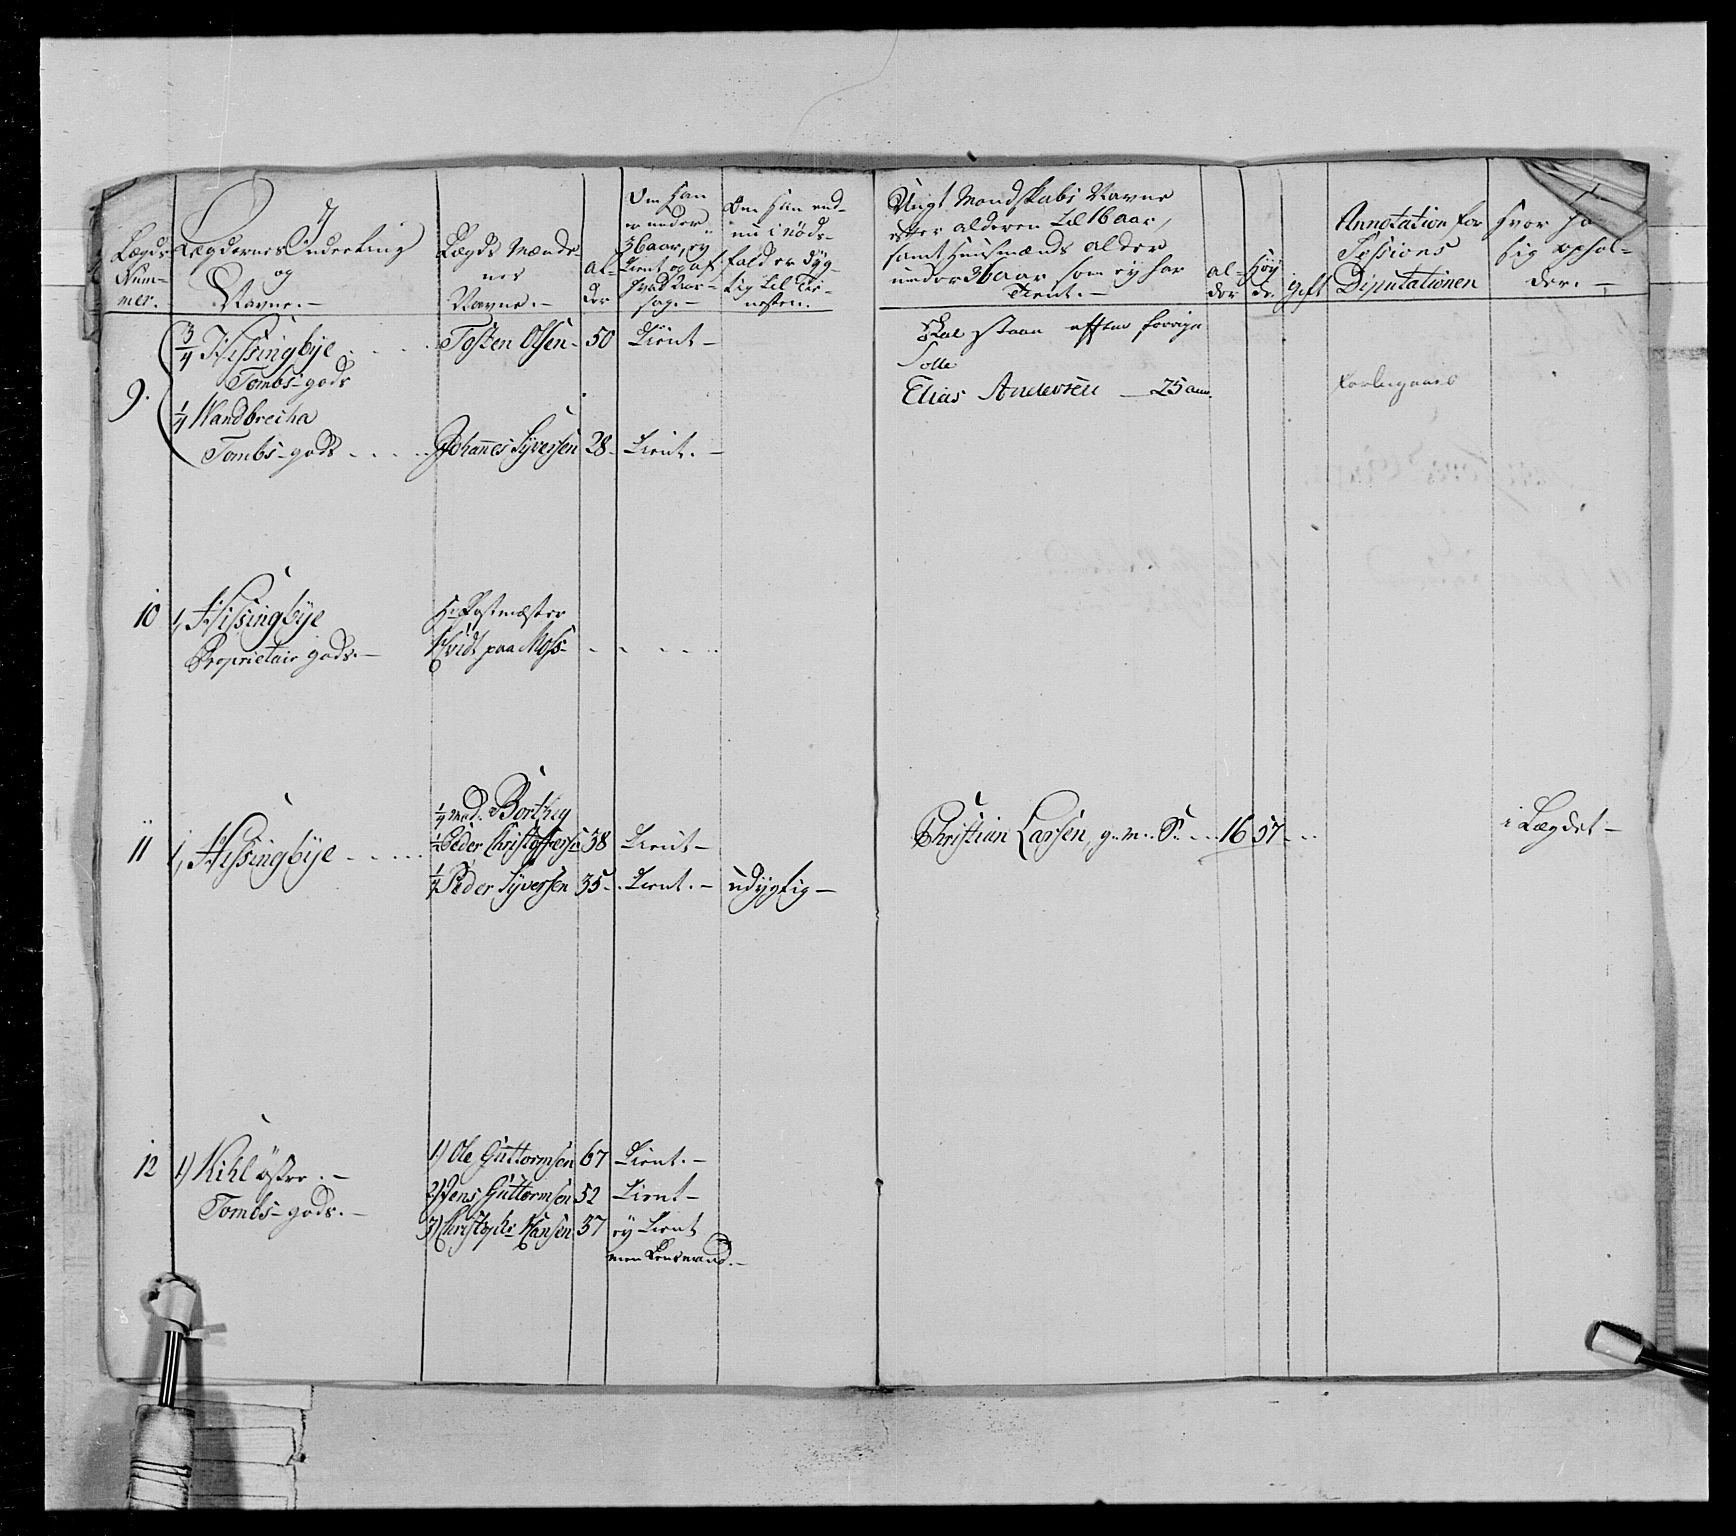 Lægds
Num-
mer.
Lægdernes Inddeeling
og
Navne.-
Lægds Mænde-
nes
Navne.-
al-
der
Om han
er under
36 aar, ey
tient og af
hvad aar-
sag.-
Om han end-
nu i nöds-
fald er dyg-
tig til Tie-
nesten.
Ungt Mandskabs Navne
efter alderen til 16 aar,
samt Huusmænds alder
under 36 aar som ey har
tient.-
al-
der
Höy
de.
gift
Annotation for
Sessions
Deputationen
Hvor
sig ophol-
der.-
9.
3/4 Hissingbye
Tombs-gods
Tosten Olsen- 50 tient-
Skal staae efter forrige
Rolle
Elias Andersen - 25 aar.
1/4 Nandbrecha
Tombs-gods
Johannes Syversen 28- tient.-
10 1, Hissingbye
Proprietair gods.-
Hr Postmæster
Hvidt paa Moss-
11 1, Hissingbye
1/4 Mad. Borthig
1/2 Peder Christoffersen 38 tient-
1/4 Peder Syversen 35- tient.- udygtig-
Christian Larsen, g.m.S. 16 57 i Lægdet-
12 1) Kihl östre.-
Tombs-gods.-
1) Ole Guttormsen 67 tient.-
2) Jens Guttormsen 52 tient-
3) Christopher Hansen 37 ey tient
men Lensmand.-